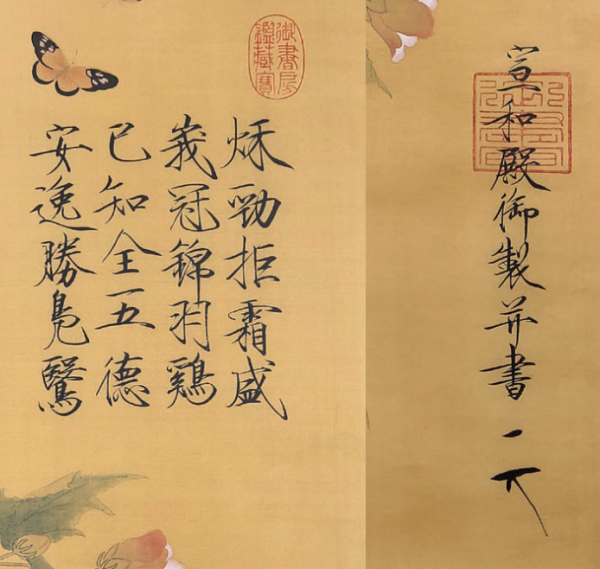 秋勁拒霜盛
峩冠錦羽鷄
已知全五德
安逸勝鳧鷖
宣和殿御製并書
御書房
鑑藏寶